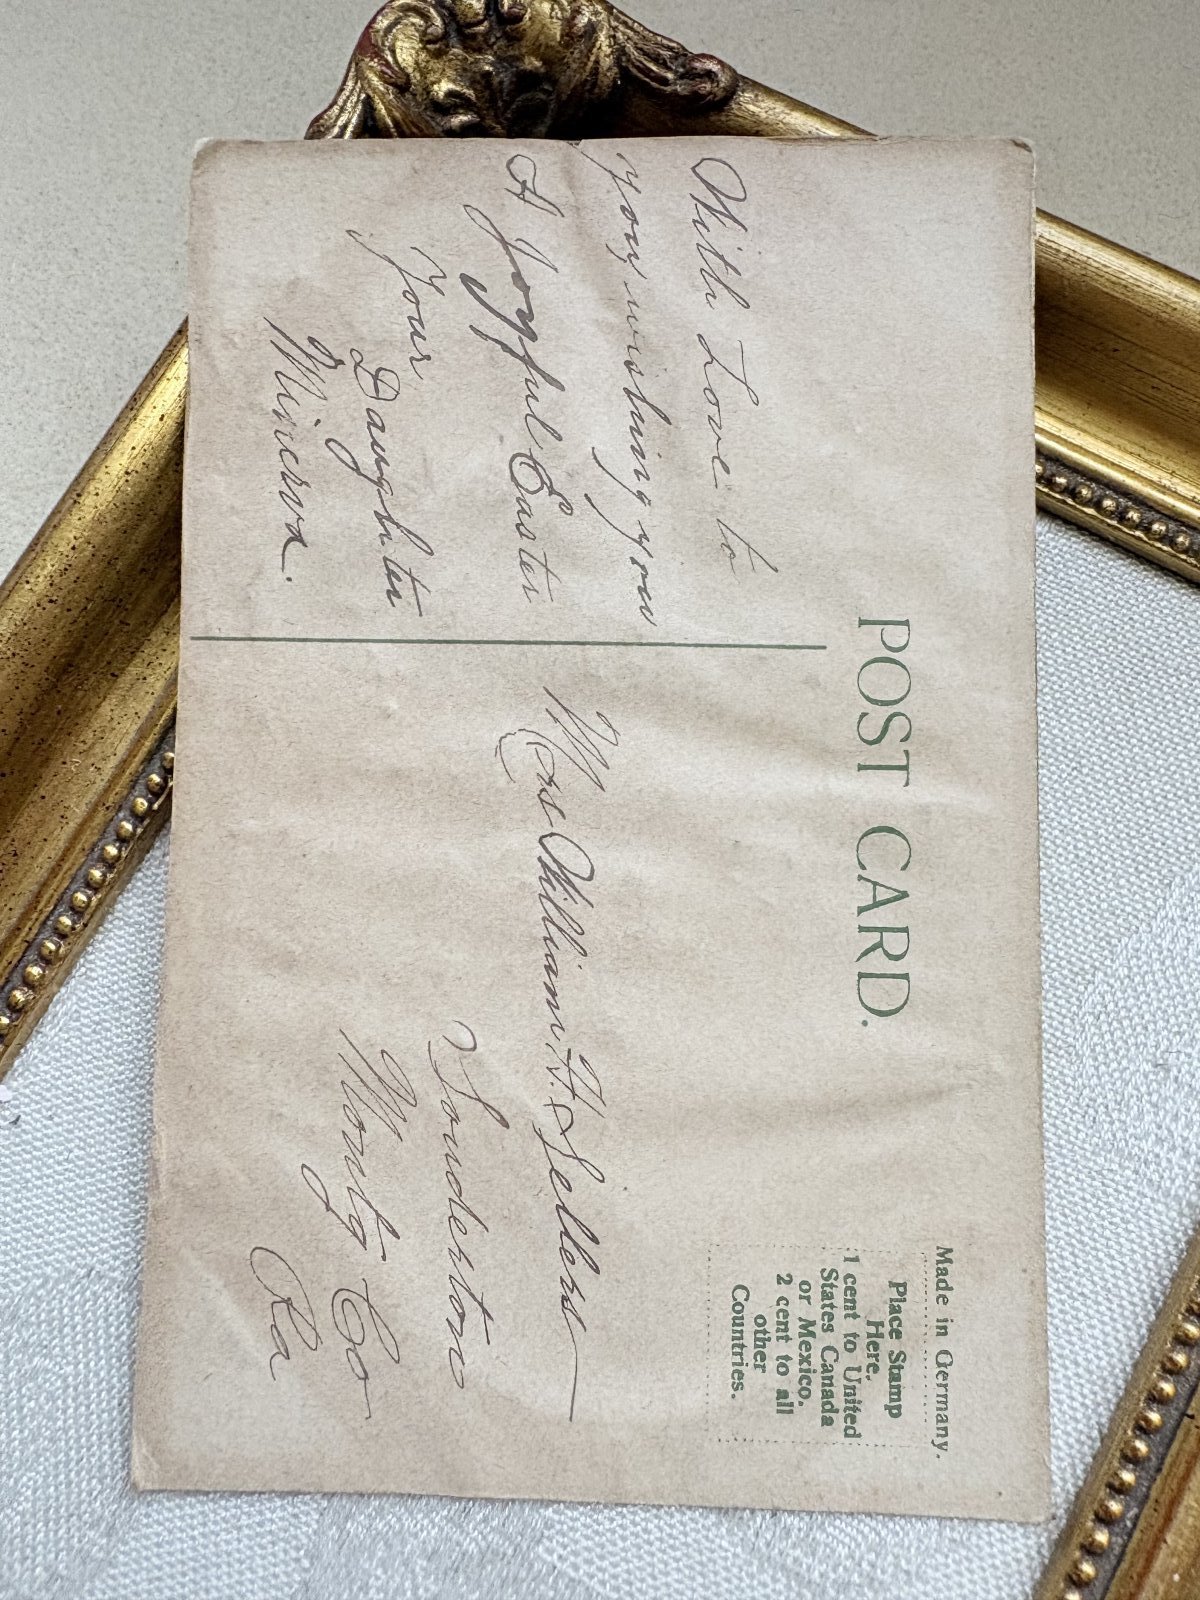 POST CARD.
Made in Germany.
Place Stamp
Here.
1 cent to United
States Canada
or Mexico.
2 cent to all
other
Countries.
With Love to
you, wishing you
A Joyful Easter
Your
Daughter
Minerva.
Mrs William H. Sellers
Souderton
Montg Co
Pa